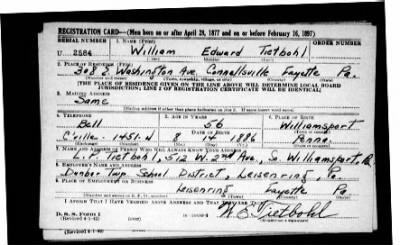 REGISTRATION CARD—(Men born on or after April 28, 1877 and on or before February 16, 1897)
SERIAL NUMBER 1. NAME (Print) ORDER NUMBER
U 2584 William Edward Tietbohl
(First) (Middle) (Last)
2. PLACE OF RESIDENCE (Print)
308 E Washington Ave. Connellsville Fayette Pa.
(Number and street) (Town, township, village, or city) (County) (State)
[THE PLACE OF RESIDENCE GIVEN ON THE LINE ABOVE WILL DETERMINE LOCAL BOARD
JURISDICTION; LINE 2 OF REGISTRATION CERTIFICATE WILL BE IDENTICAL]
3. MAILING ADDRESS
Same
(Mailing address if other than place indicated on line 2. If same insert word same)
4. TELEPHONE 5. AGE IN YEARS 6. PLACE OF BIRTH
Bell 56 Williamsport
DATE OF BIRTH (Town or county)
C'ville 1451-J 8 14 1886 Penna.
(Exchange) (Number) (Mo.) (Day) (Yr.) (State or country)
7. NAME AND ADDRESS OF PERSON WHO WILL ALWAYS KNOW YOUR ADDRESS
L. P. Tietbohl, 512 W. 2nd Ave., S. Williamsport, Pa.
8. EMPLOYER'S NAME AND ADDRESS
Dunbar Twp. School District, Leisenring, Pa.
9. PLACE OF EMPLOYMENT OR BUSINESS
Leisenring Fayette Pa.
(Number and street or R. F. D. number) (Town) (County) (State)
I AFFIRM THAT I HAVE VERIFIED ABOVE ANSWERS AND THAT THEY ARE TRUE.
D. S. S. Form 1
(Revised 4-1-42) W E Tietbohl